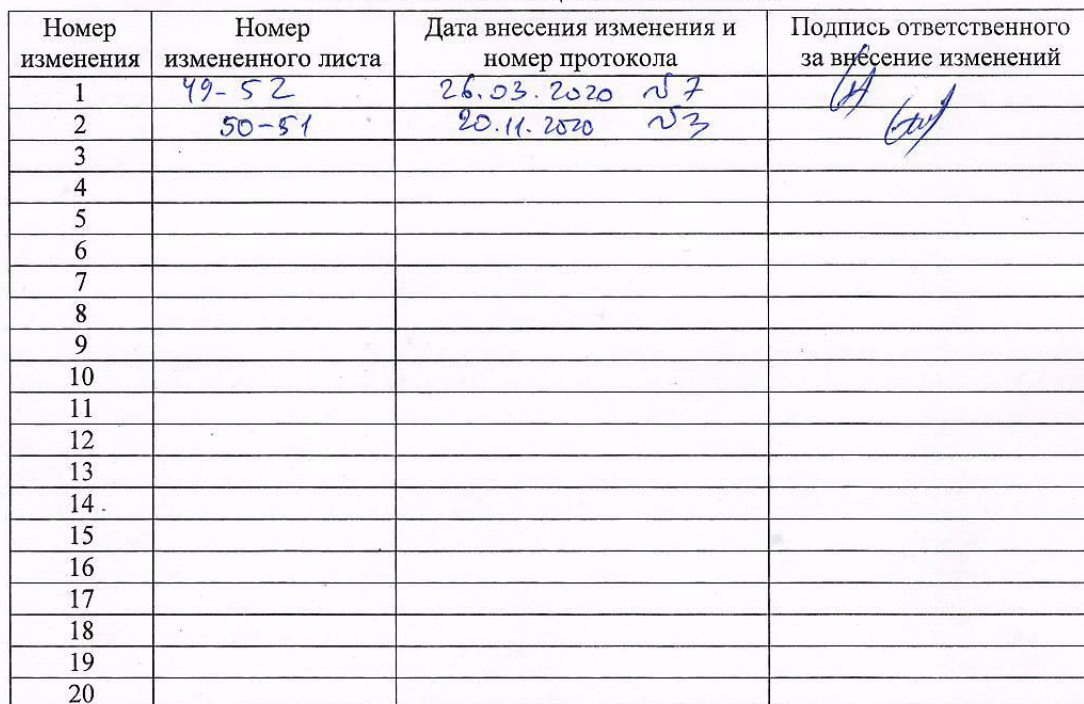 Номер изменения Номер измененного листа Дата внесения изменения и номер протокола Подпись ответственного за внесение изменений
1 49-52 26.03.2020 №7
2 50-51 20.11.2020 №3
3
4
5
6
7
8
9
10
11
12
13
14
15
16
17
18
19
20